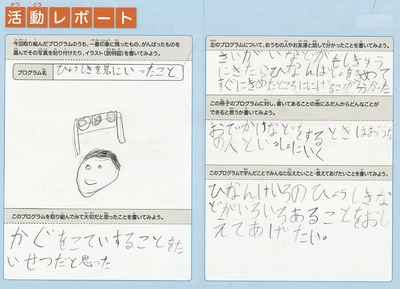 活動レポート
かつ どう
今回取り組んだプログラムのうち、一番印象に残ったもの、がんばったものを
選んでその写真を貼り付けたり、イラスト(説明図)を書いてみよう。
プログラム名
ひょうしきを見にいったこと
このプログラムを取り組んでみて大切だと思ったことを書いてみよう。
かぐをこていすることをた
いせつだと思った
左のプログラムについて、おうちの人やお友達と話して分かったことを書いてみよう。
さいがいなどがもしきゅう
にきたらひなんばしょをきめて
すぐにきめたところににげることが分かった
この冊子のプログラムに対し、書いてあることの他にふだんからどんなことが
できると思うか書いてみよう。
おでかけなどをするときはおうち
の人といっしょにいく
このプログラムで学んだことでみんなに伝えたいこと・教えてあげたいことを書いてみよう。
ひなんけいろのひょうしきな
どがいろいろあることをおし
えてあげたい。